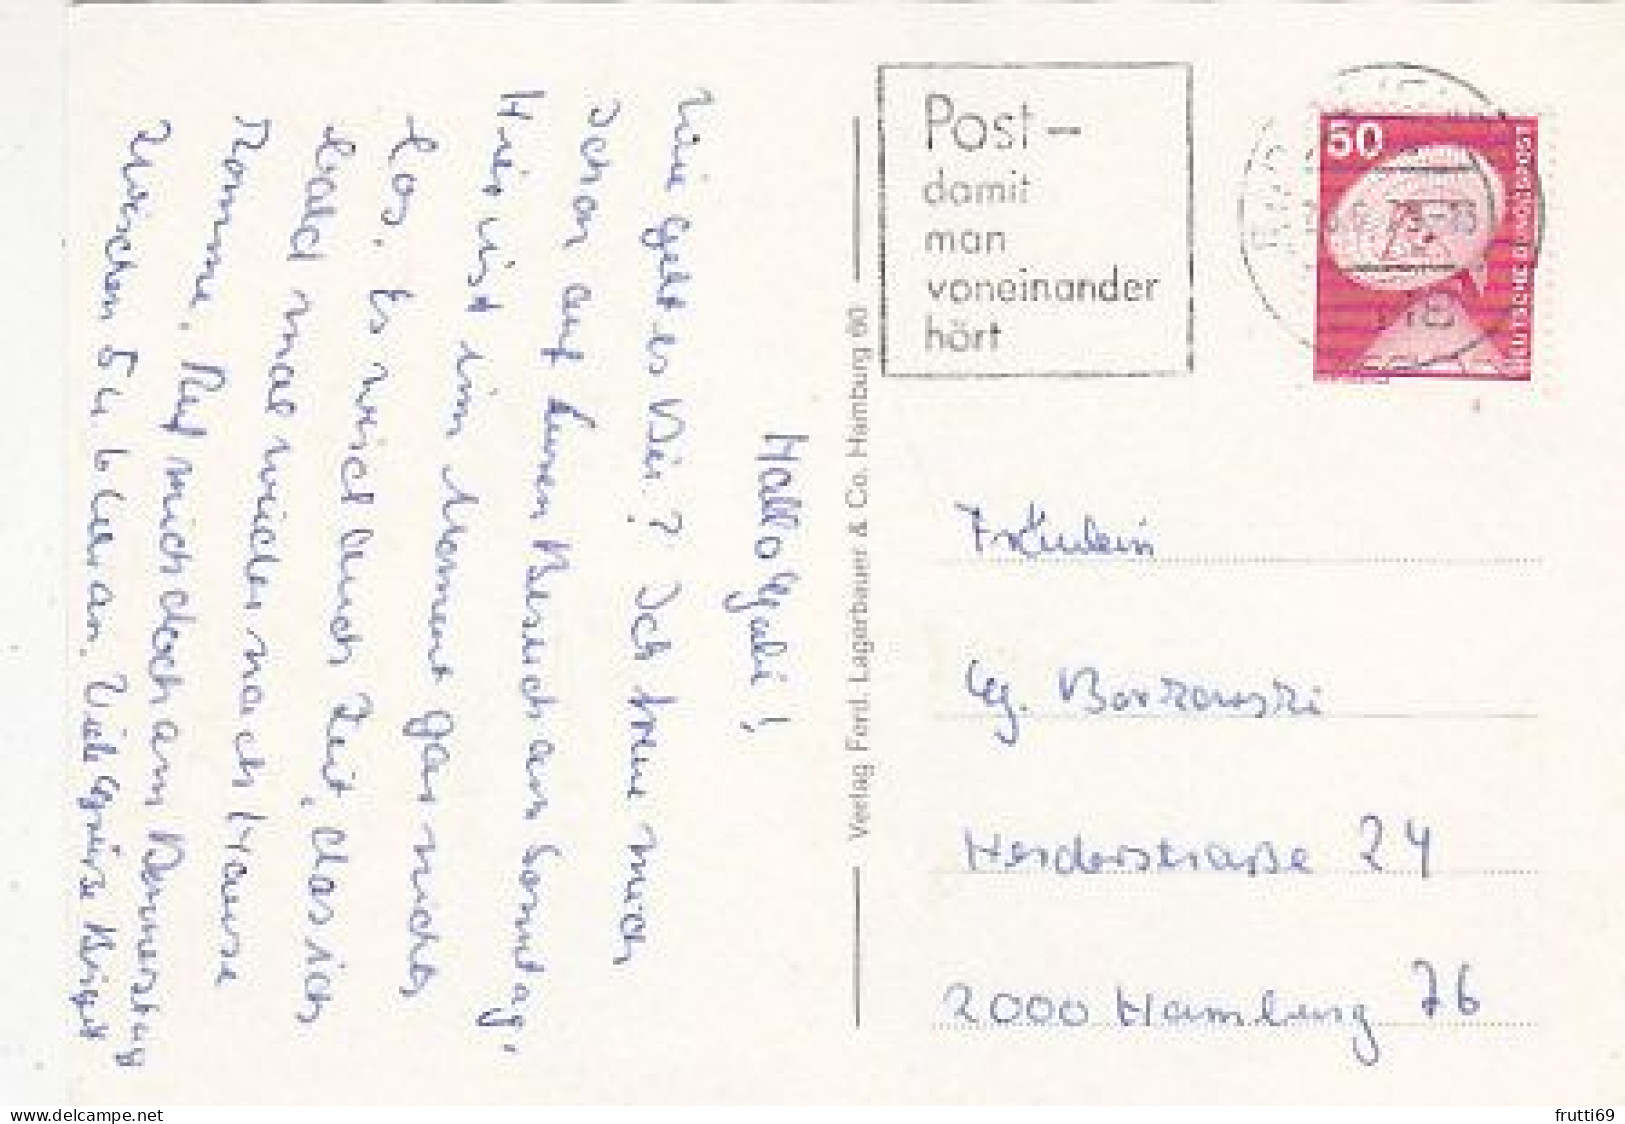 Hallo Gabi!
Wie geht es Dir? Ich freue mich
schon auf Deinen Besuch am Sonntag.
Hier ist im Moment gar nichts
los. Es wird auch Zeit, dass ich
bald mal wieder nach Hause
komme. Ruf mich doch am Donnerstag
zwischen 5 u. 6 Uhr an. Viele Grüsse Birgit
Verlag Ferd. Lagerbauer & Co. Hamburg 60
Post -
damit
man
voneinander
hört
50
DEUTSCHE BUNDESPOST
Fräulein
Borzowski
Herderstraße 24
2000 Hamburg 76
www.delcampe.net
frutti69